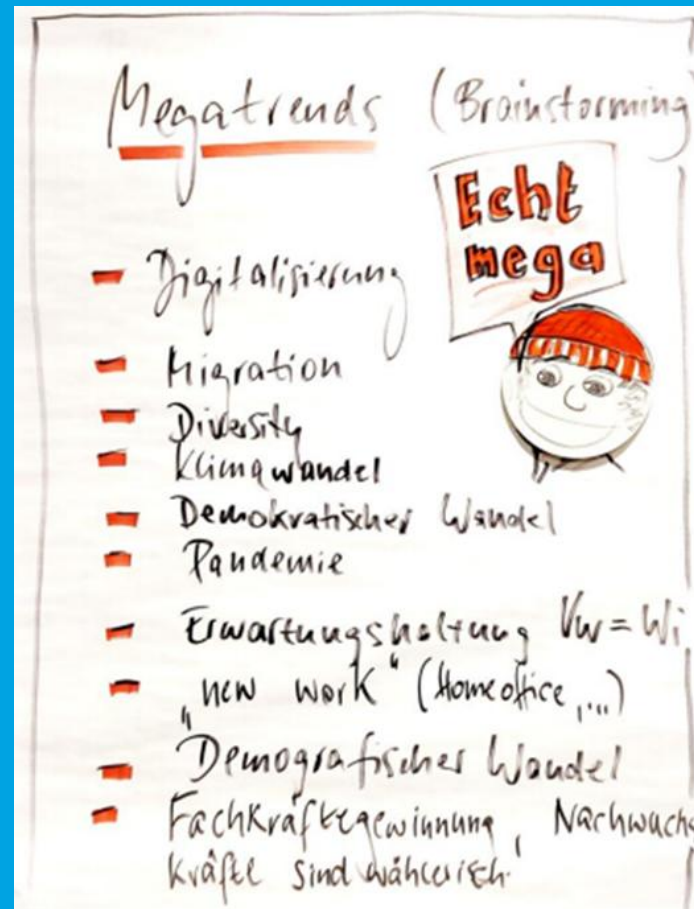 Megatrends (Brainstorming
Echt
mega
- Digitalisierung
- Migration
- Diversity
- Klimawandel
- Demokratischer Wandel
- Pandemie
- Erwartungshaltung Vw = Wi
- "new work" (Homeoffice, ...)
- Demografischer Wandel
- Fachkräftegewinnung, Nachwuchs
kräfte sind wählerisch